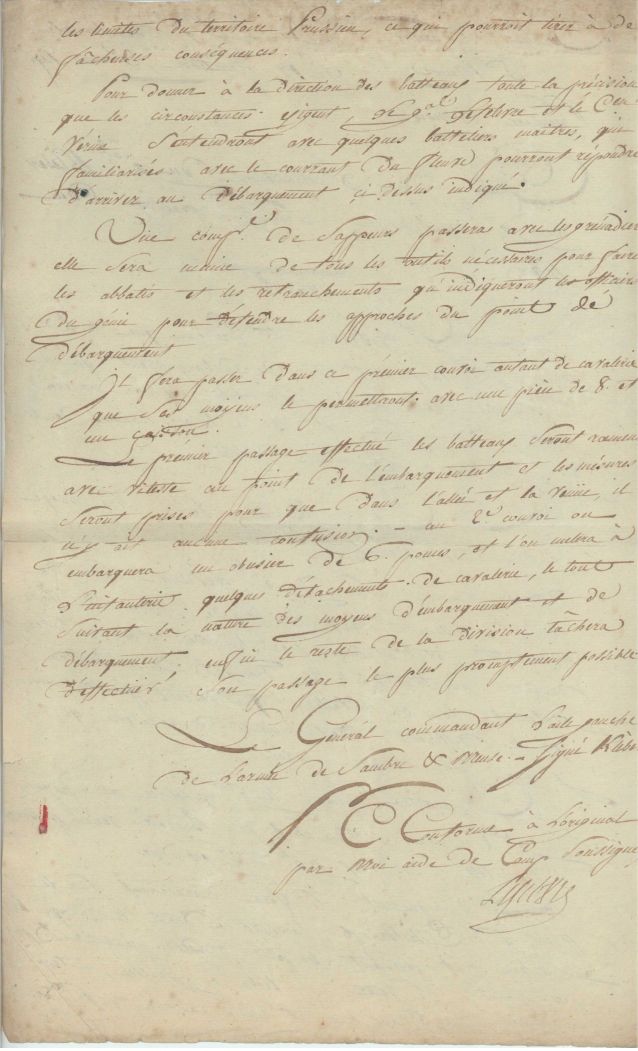 les limites du territoire Prussien, ce qui pourroit tirer à de
fâcheuses conséquences.
Pour donner à la direction des batteaux toute la précision
que les circonstances exigent, le g.al Lefebvre et le C.en
Vérine s'entendront avec quelques batteliers maitres, qui
familiarisés avec le courrant du fleuve pourront répondre
d'arriver au débarquement ci dessus indiqué.
Une comp.e de Sappeurs passera avec les grenadiers
elle sera munie de tous les outils nécessaires pour faire
les abbatis et les retranchements qu'indiqueront les officiers
du génie pour défendre les approches du point de
débarquement
Il fera passer dans ce prémier couroi autant de cavalerie
que ses moyens le permettront avec une pièce de 8. et
un caisson.
Le prémier passage effectué les batteaux seront ramenés
avec vitesse au point de l'embarquement et les mésures
seront prises pour que dans l'allée et la venue, il
n'y ait aucune confusion. - au 2.e couroi on
embarquera un obusier de 6. pouces, et l'on mêlera à
l'infanterie quelques détachements de cavalerie, le tout
suivant la nature des moyens d'embarquement et de
débarquement. enfin le reste de la division tâchera
d'effectuer son passage le plus promptement possible
Le Général commandant l'aile gauche
de l'armée de Sambre & Meuse. - Signé Kléber
P C Conforme à l'original
par moi aide de Camp soussigné